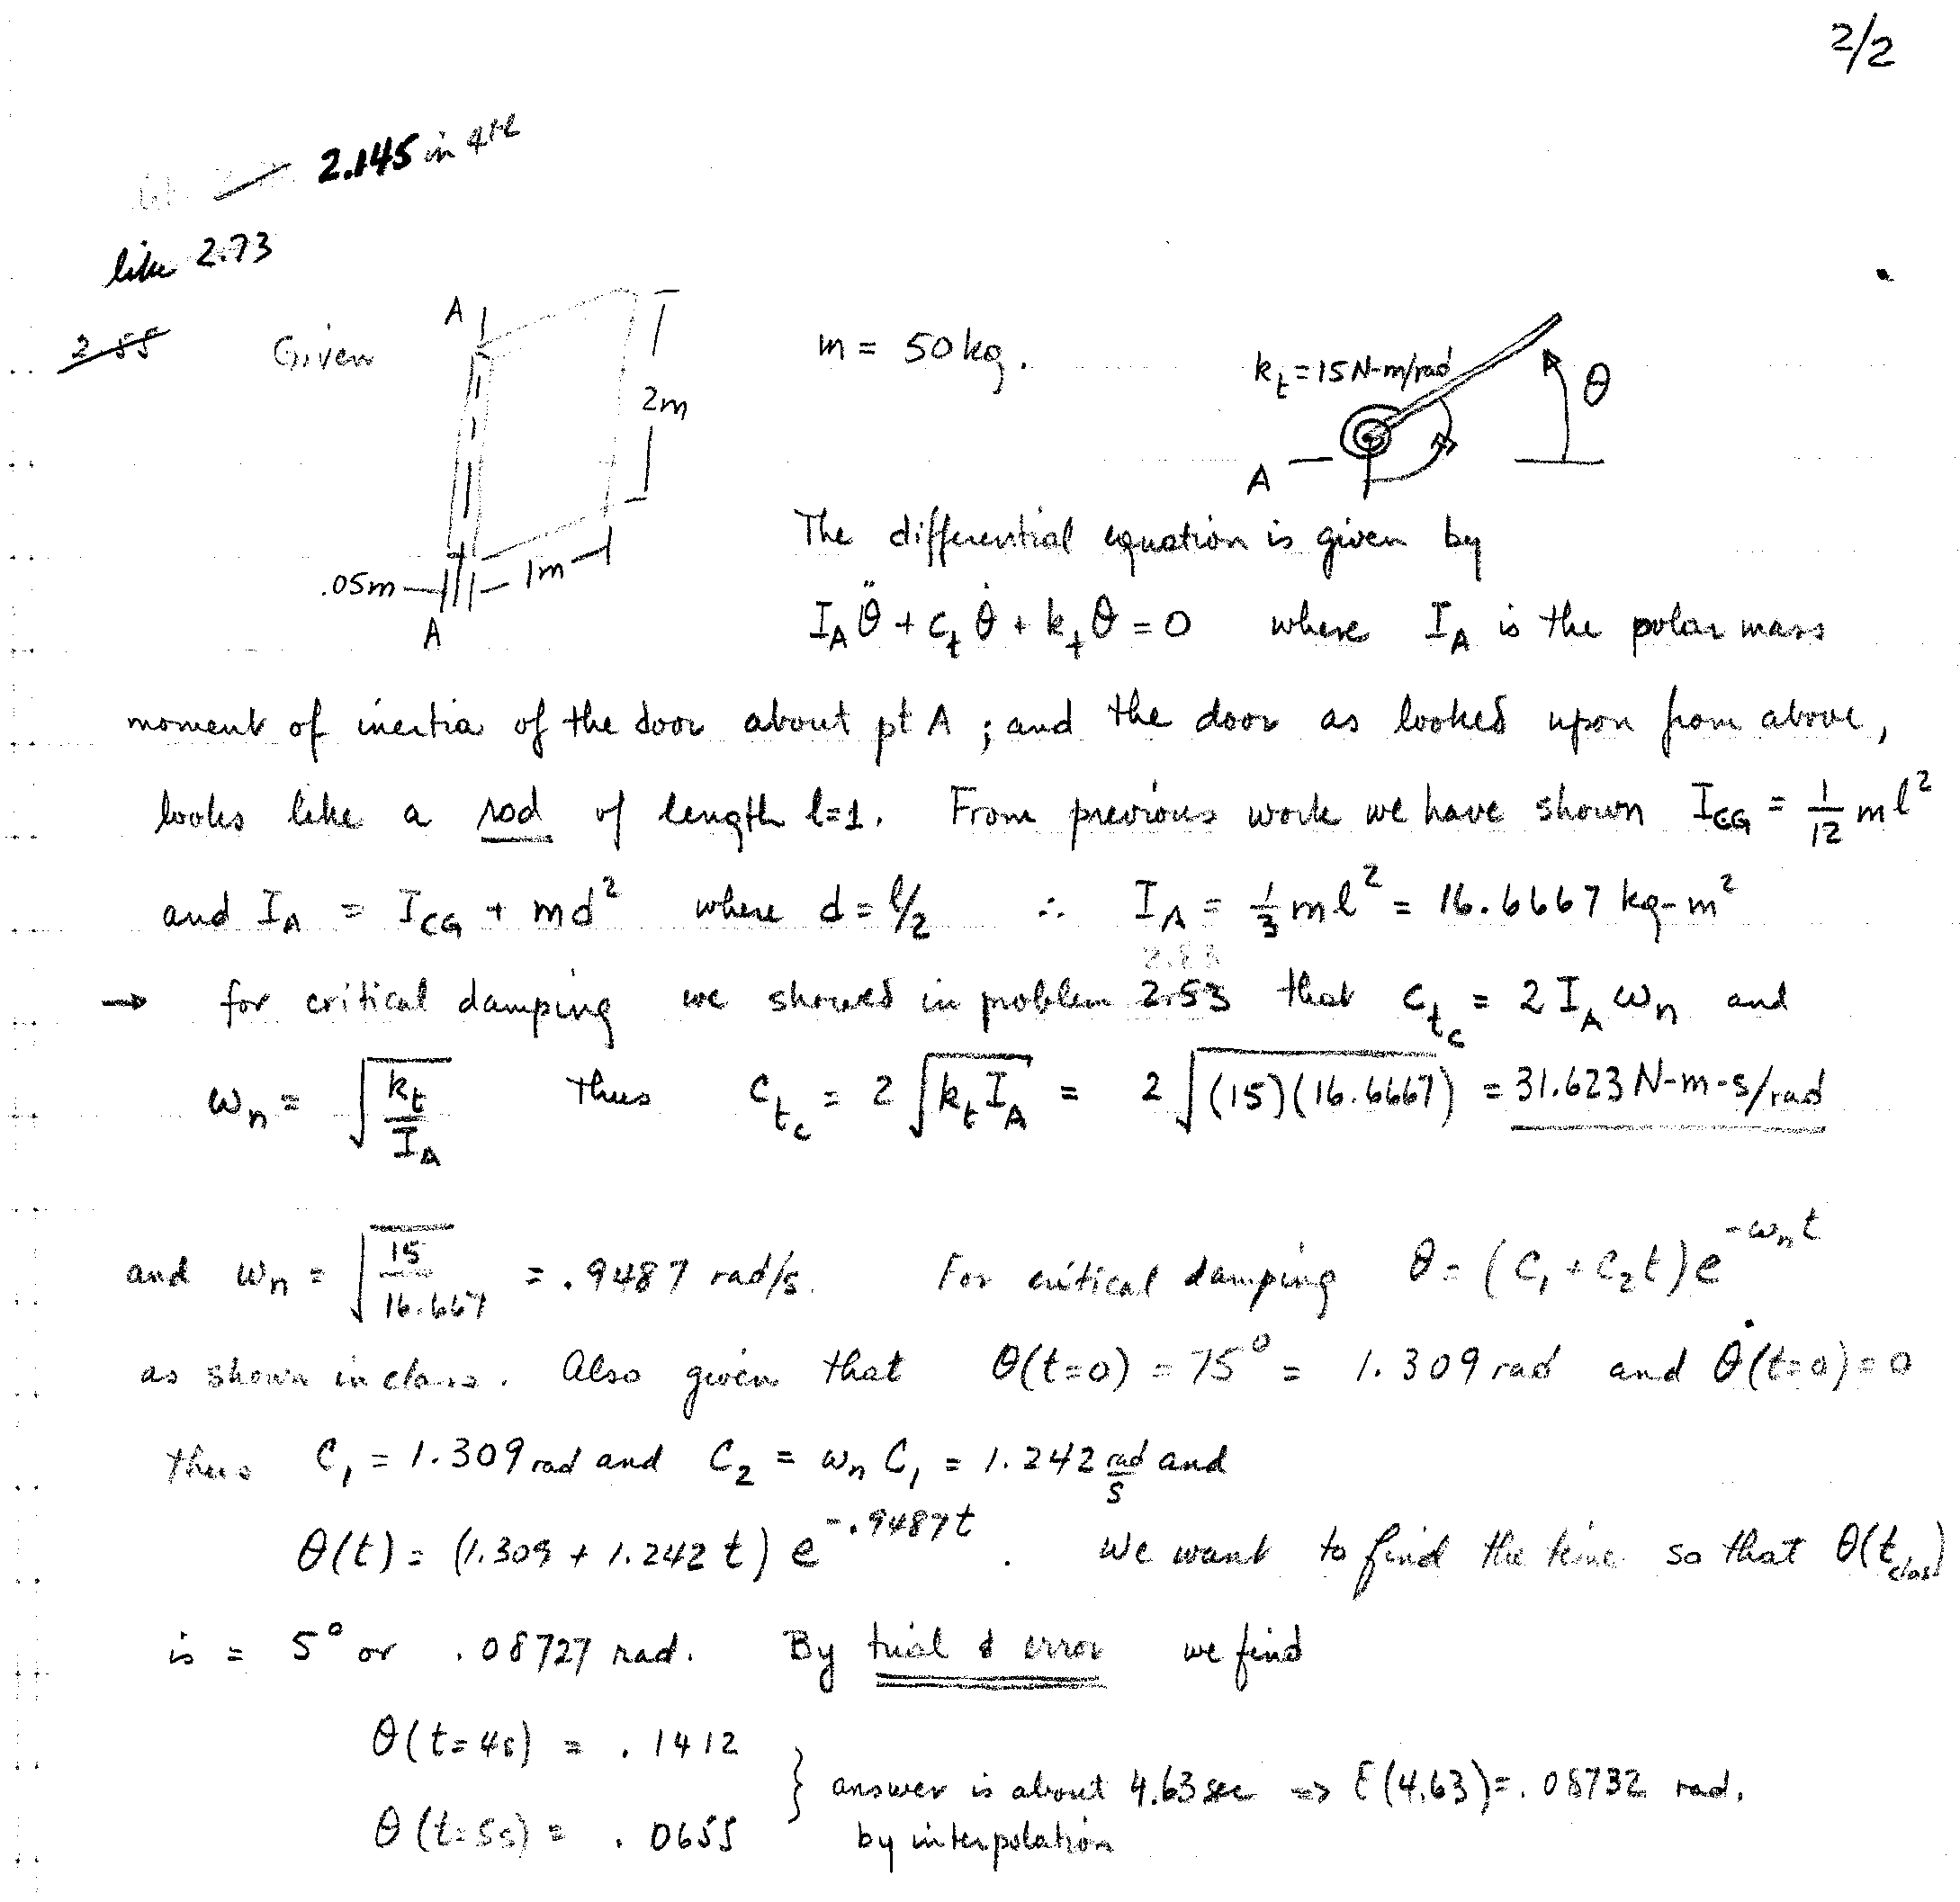 2/2
2.145 in 4th
like 2.73
2.55 Given
A
2m
1m
.05m
A
m = 50 kg.
k_t = 15 N-m/rad
θ
A
The differential equation is given by
I_A θ̈ + c_t θ̇ + k_t θ = 0 where I_A is the polar mass
moment of inertia of the door about pt A ; and the door as looked upon from above,
looks like a rod of length l=1. From previous work we have shown I_CG = 1/12 ml²
and I_A = I_CG + md² where d = l/2 ∴ I_A = 1/3 ml² = 16.6667 kg-m²
→ for critical damping we showed in problem 2.53 that c_t_c = 2 I_A ω_n and
ω_n = √(k_t/I_A) Thus c_t_c = 2 √(k_t I_A) = 2 √((15)(16.6667)) = 31.623 N-m-s/rad
and ω_n = √(15/16.667) = .9487 rad/s. For critical damping θ = (C₁ + C₂t)e^(-ω_n t)
as shown in class. Also given that θ(t=0) = 75° = 1.309 rad and θ̇(t=0) = 0
thus C₁ = 1.309 rad and C₂ = ω_n C₁ = 1.242 rad/s and
θ(t) = (1.309 + 1.242 t) e^(-.9487t). We want to find the time so that θ(t_clos)
is = 5° or .08727 rad. By trial & error we find
θ(t=4s) = .1412
θ(t=5s) = .0655
} answer is about 4.63 sec ⇒ θ(4.63) = .08732 rad.
by interpolation